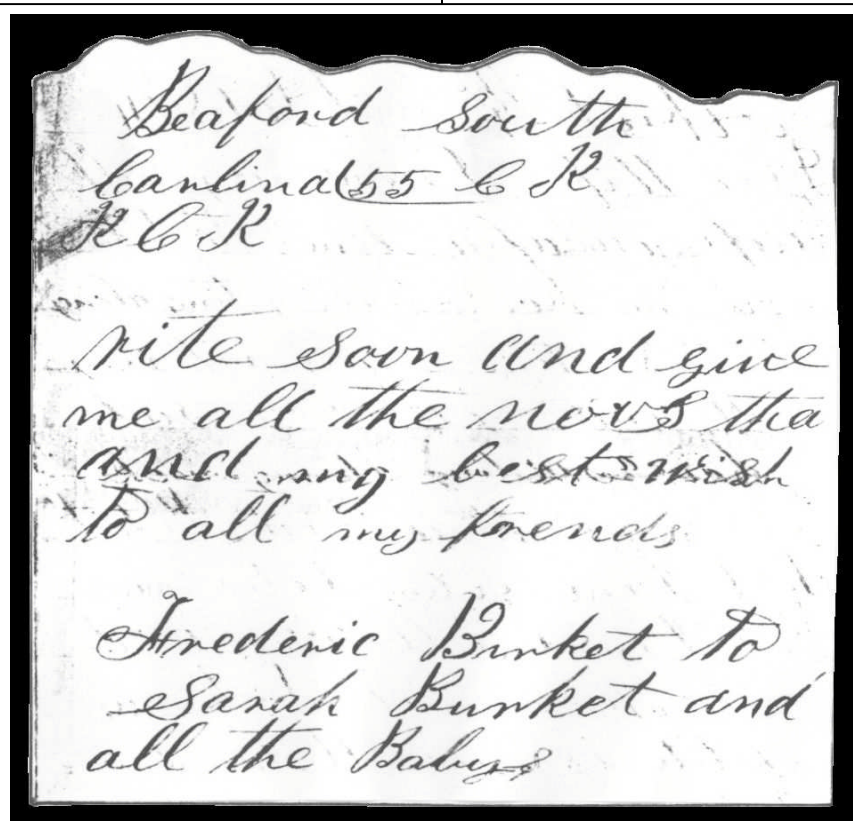 Beaford South
Carlina 55 C K
K C K
rite soon and give
me all the novs tha
and my best wish
to all my frends
Frederic Burket to
Sarah Burket and
all the Babys